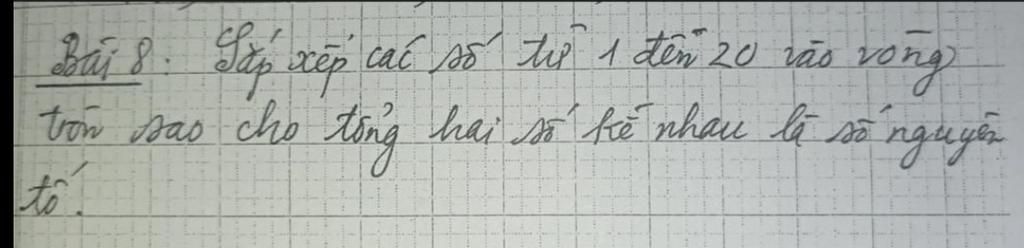 Bài 8: Sắp xếp các số từ 1 đến 20 vào vòng
tròn sao cho tổng hai số kề nhau là số nguyên
tố.